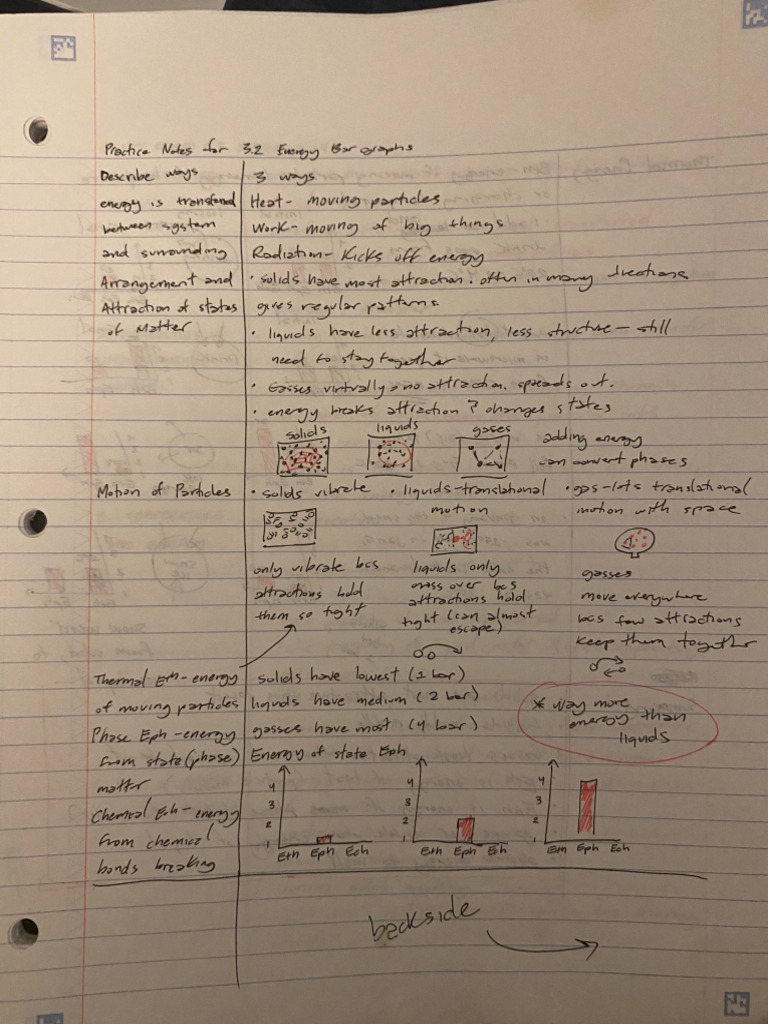 Practice Notes for 3.2 Energy Bar graphs
Describe ways
energy is transfered
between system
and surrounding
3 ways
Heat- moving particles
Work- moving of big things
Radiation- Kicks off energy
Arrangement and
Attraction of states
of Matter
• solids have most attraction. often in many directions
gives regular patterns
• liquids have less attraction, less structure - still
need to stay together
• Gasses virtually no attraction. spreads out.
• energy breaks attraction & changes states
solids
liquids
gases
adding energy
can convert phases
Motion of Particles
• solids vibrate
only vibrate bcs
attractions hold
them so tight
• liquids-translational
motion
liquids only
cross over bcs
attractions hold
tight (can almost
escape)
• gas-lots translational
motion with space
gasses
move everywhere
bcs few attractions
keep them together
Thermal Eth - energy
of moving particles
Phase Eph - energy
from state (phase)
matter
Chemical Ech - energy
from chemical
bonds breaking
solids have lowest (1 bar)
liquids have medium (2 bar)
gasses have most (4 bar)
* Way more
energy than
liquids
Energy of state Eph
4
3
2
1
Eth Eph Ech
4
3
2
1
Eth Eph Ech
4
3
2
1
Eth Eph Ech
backside